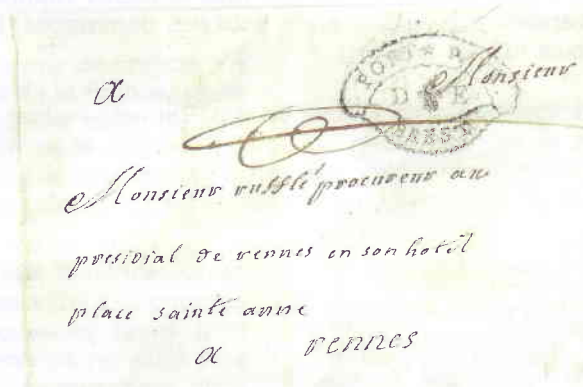 a Monsieur
PORT P
D E
BREST
Monsieur rufflé procureur au
presidial de rennes en son hotel
place sainte anne
a rennes